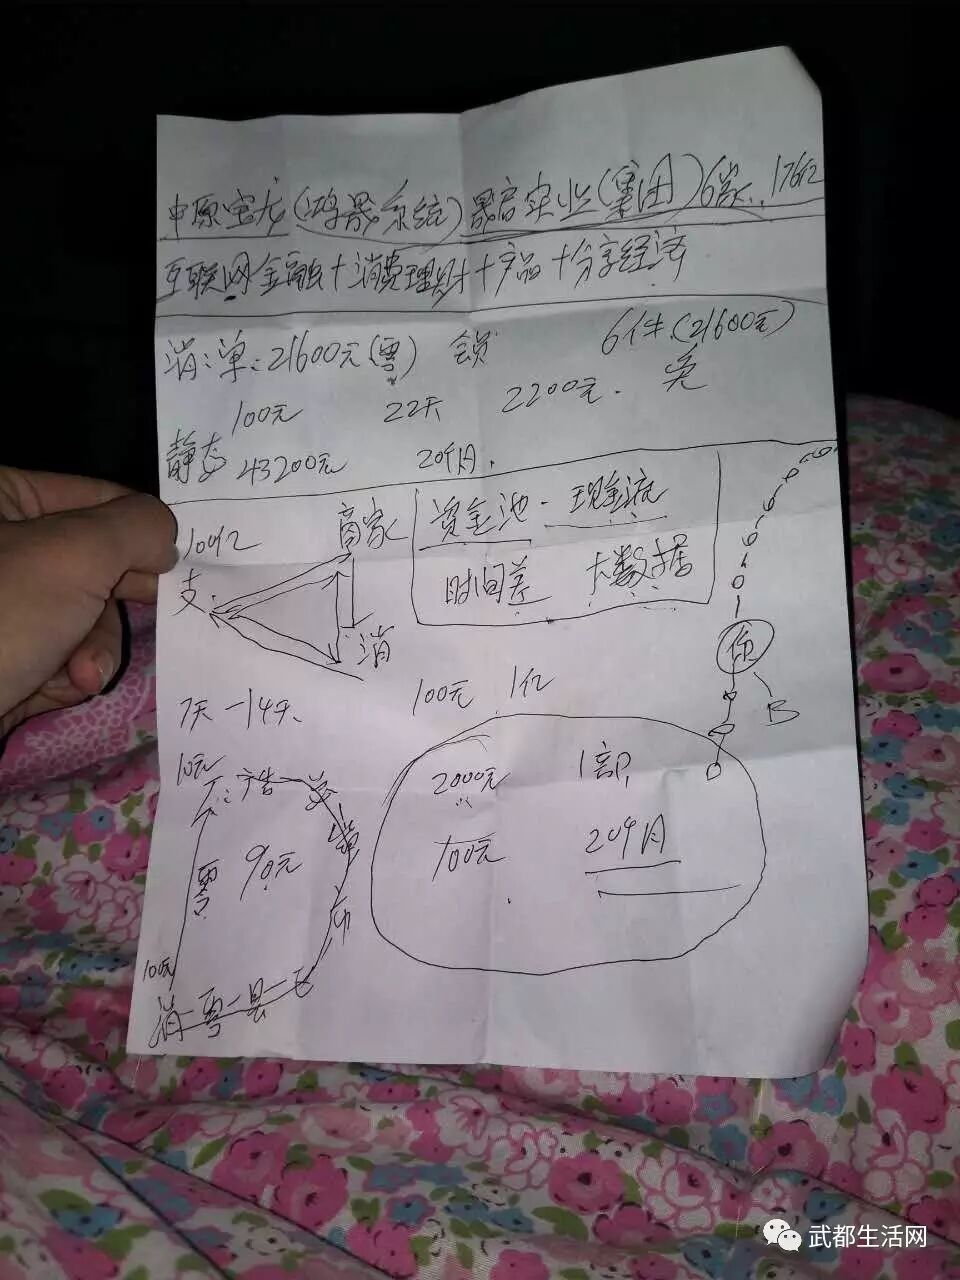 中原宝龙(鸿晟系统)晟启实业(集团)6家..176亿
互联网金融+消费理财+产品+分享经济
消:单:21600元(零) 会员 6件(21600元)
100元 22天 2200元. 免
静态 43200元 20个月.
100亿 商家 资金池-现金流
支. 时间差 大数据
消 你
B
7天-14天. 100元 1亿
10元 2000元 1部
厂:广告 总 省 市
零 90元 100元 20个月
100元
消-零-县-
武都生活网